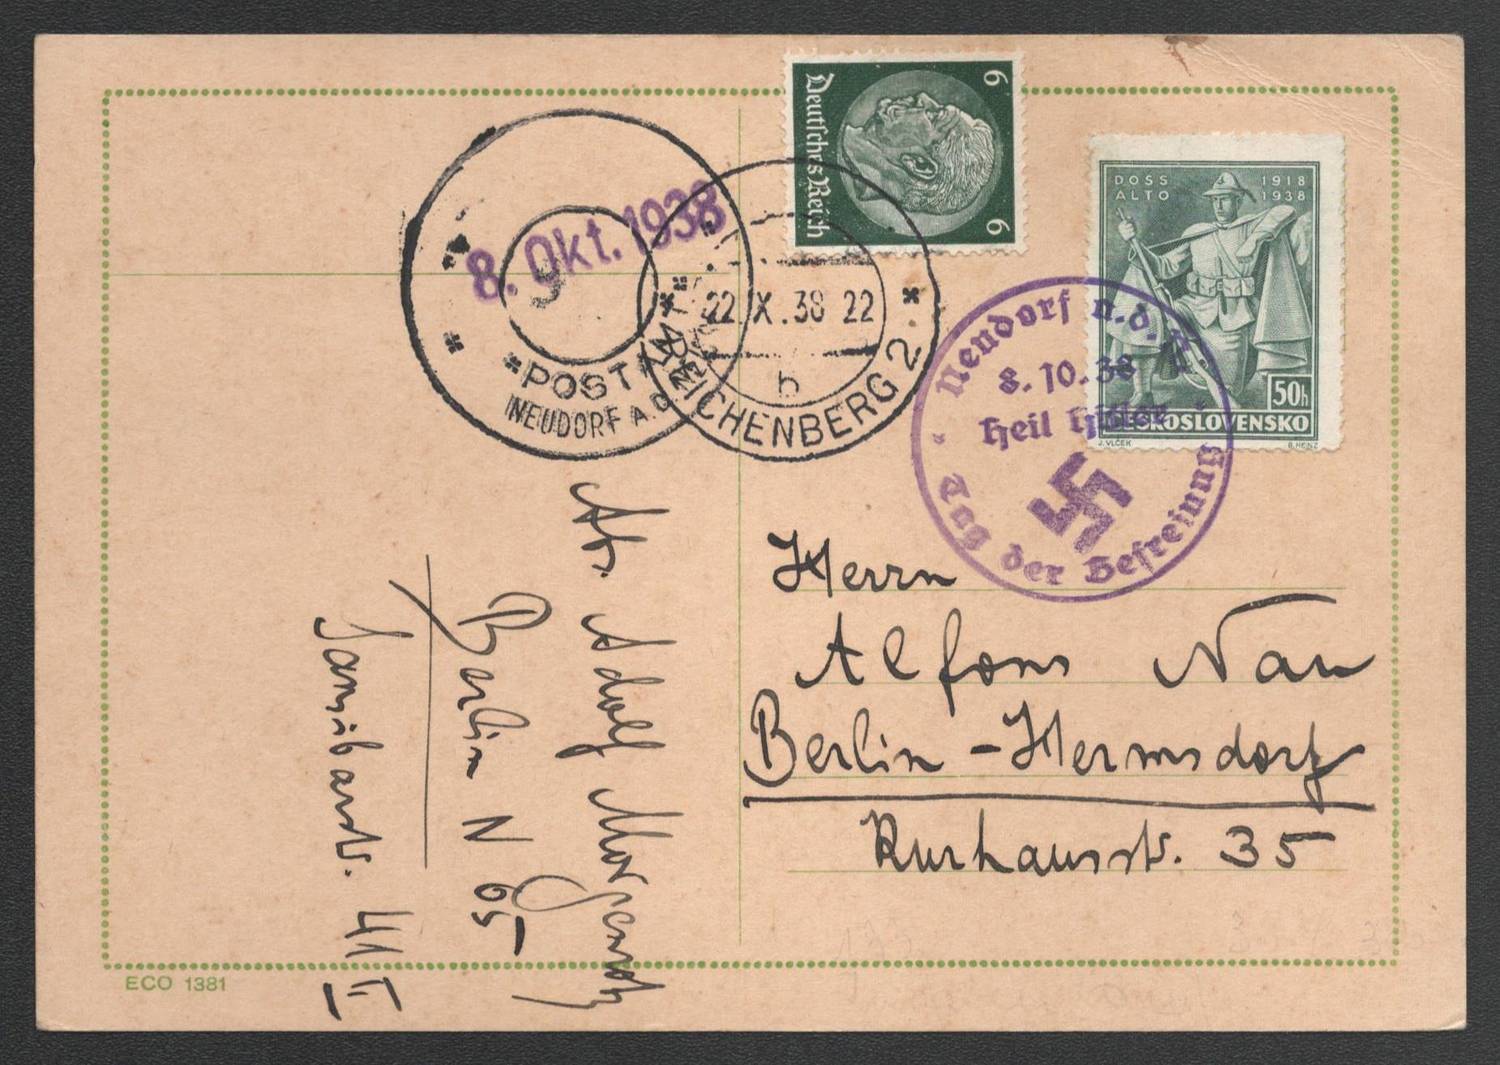 Deutsches Reich
6
6
DOSS ALTO
1918
1938
50h
ČESKOSLOVENSKO
J. VLČEK
B. HEINZ
8. Okt. 1938
*POST*
NEUDORF A. D.
22. X. 38 22
b
REICHENBERG 2
Neudorf a.d.
8. 10. 38
Heil Hitler
Tag der Befreiung
Herrn
Alfons Nau
Berlin-Hermsdorf
Kurhausstr. 35
Abs. Adolf
Berlin N 65
Sansibarstr. 41 I
ECO 1381